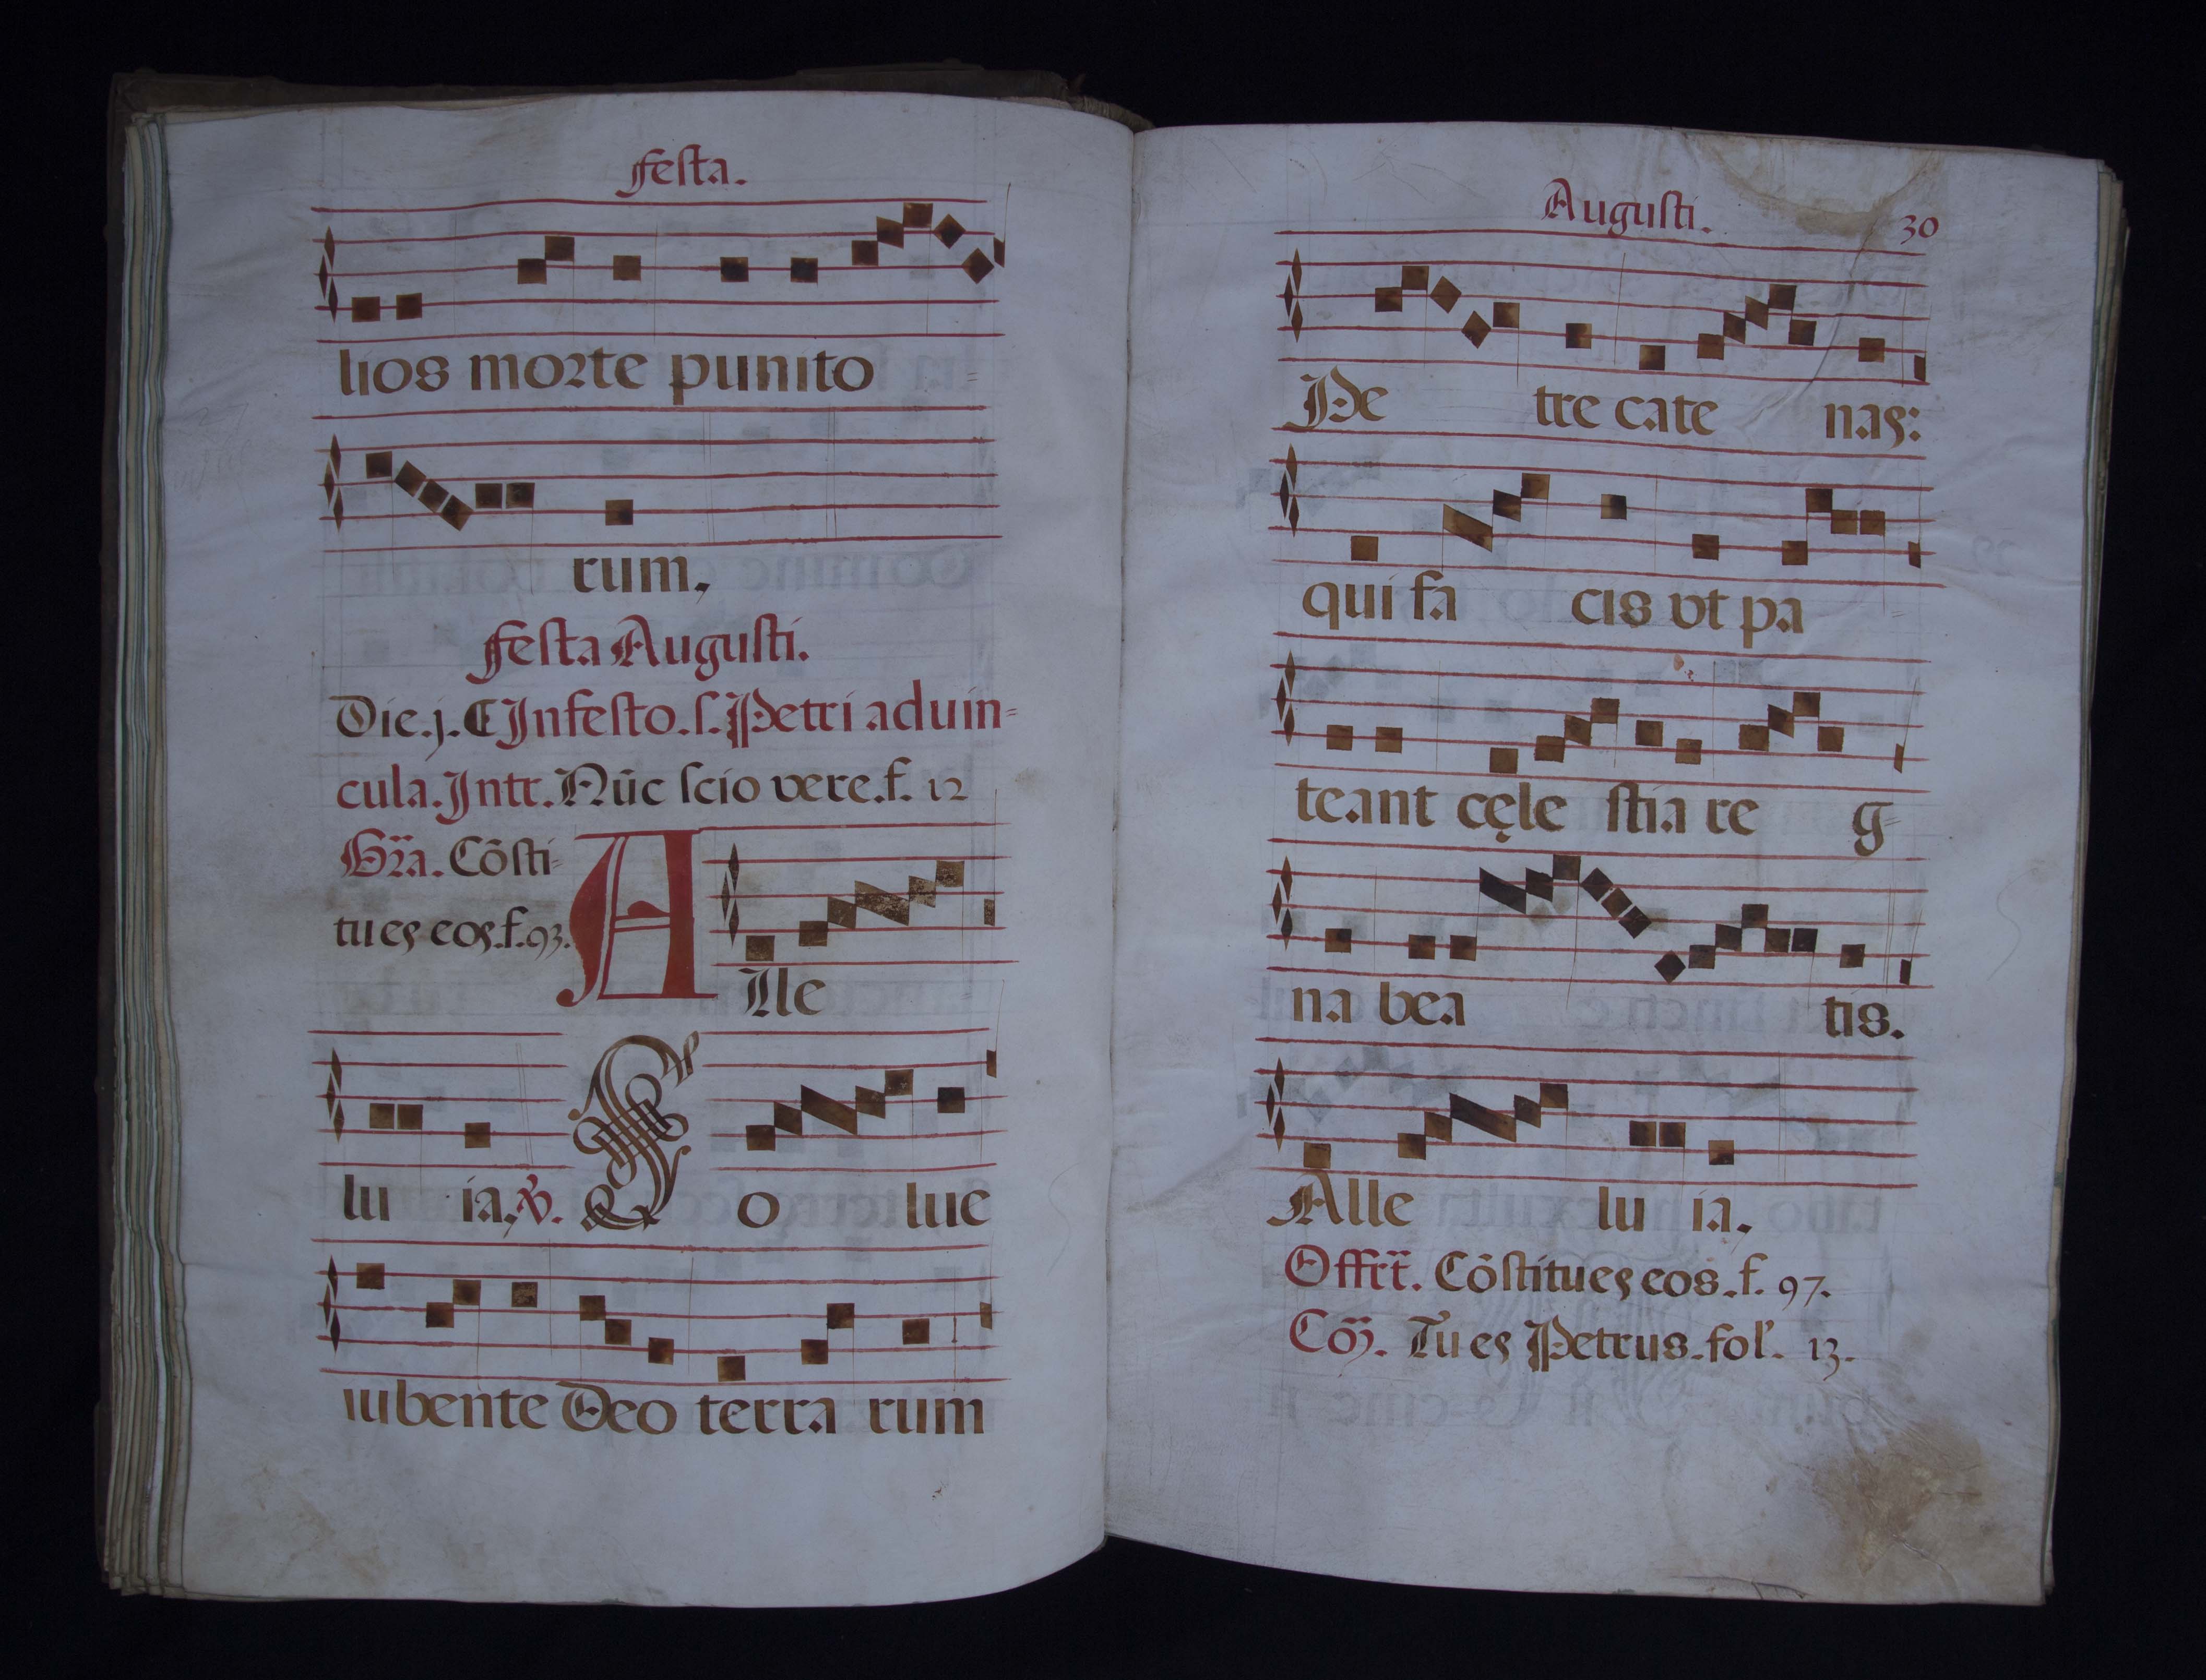 festa.
lios morte punito
rum.
festa Augusti.
Die.j. In festo.s. Petri ad uin=
cula. Intr. Nūc scio vere. f. 12
Gr̃a. Cōsti=
tues eos. f. 93.
Alle
lu ia. ℣. S o lue
iubente Deo terra rum
Augusti. 30
Pe tre cate nas:
qui fa cis vt pa
teant cęle stia re g=
na bea tis.
Alle lu ia.
Offert̃. Cōstitues eos. f. 97.
Cō. Tu es Petrus. fol. 13.